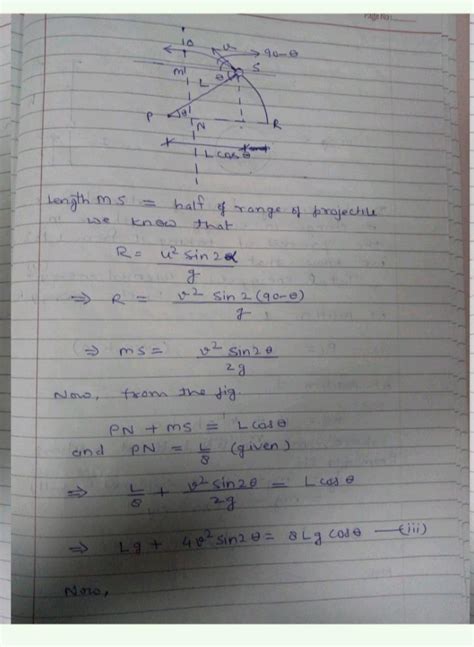 Page No.:
O
u
90-θ
M
θ
S
L
P
θ
N
R
L cosθ
Length MS = half of range of projectile
we know that
R = u² sin 2α / g
⇒ R = v² sin 2(90-θ) / g
⇒ MS = v² sin 2θ / 2g
Now, from the fig.
PN + MS = L cosθ
and PN = L/8 (given)
⇒ L/8 + v² sin 2θ / 2g = L cosθ
⇒ Lg + 4v² sin 2θ = 8Lg cosθ —(iii)
Now,